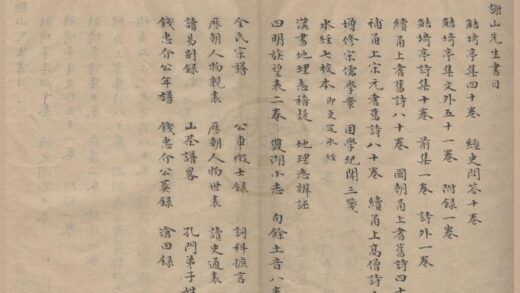 謝山先生書目
鮚埼亭集四十卷 經史問答十卷
鮚埼亭集文外五十一卷 附錄一卷
鮚埼亭詩集十卷 前集一卷 詩外一卷
續甬上耆舊詩八十卷 國朝甬上耆舊詩四十
補甬上宋元耆舊詩八十卷 續甬上高僧詩
增修宋儒學案 困學紀聞三箋
水經七校本 即更定水經
漢書地理志稽疑 地理志辨誣
四明族望表二卷 雙湖小志 句餘土音八卷
全氏宗譜 公車徵士錄 詞科摭言
歷朝人物親表 歷朝人物世表 讀史通表
讀易別錄 山茶譜畧 孔門弟子姓
錢忠介公年譜 錢忠介公葬錄 滄田錄